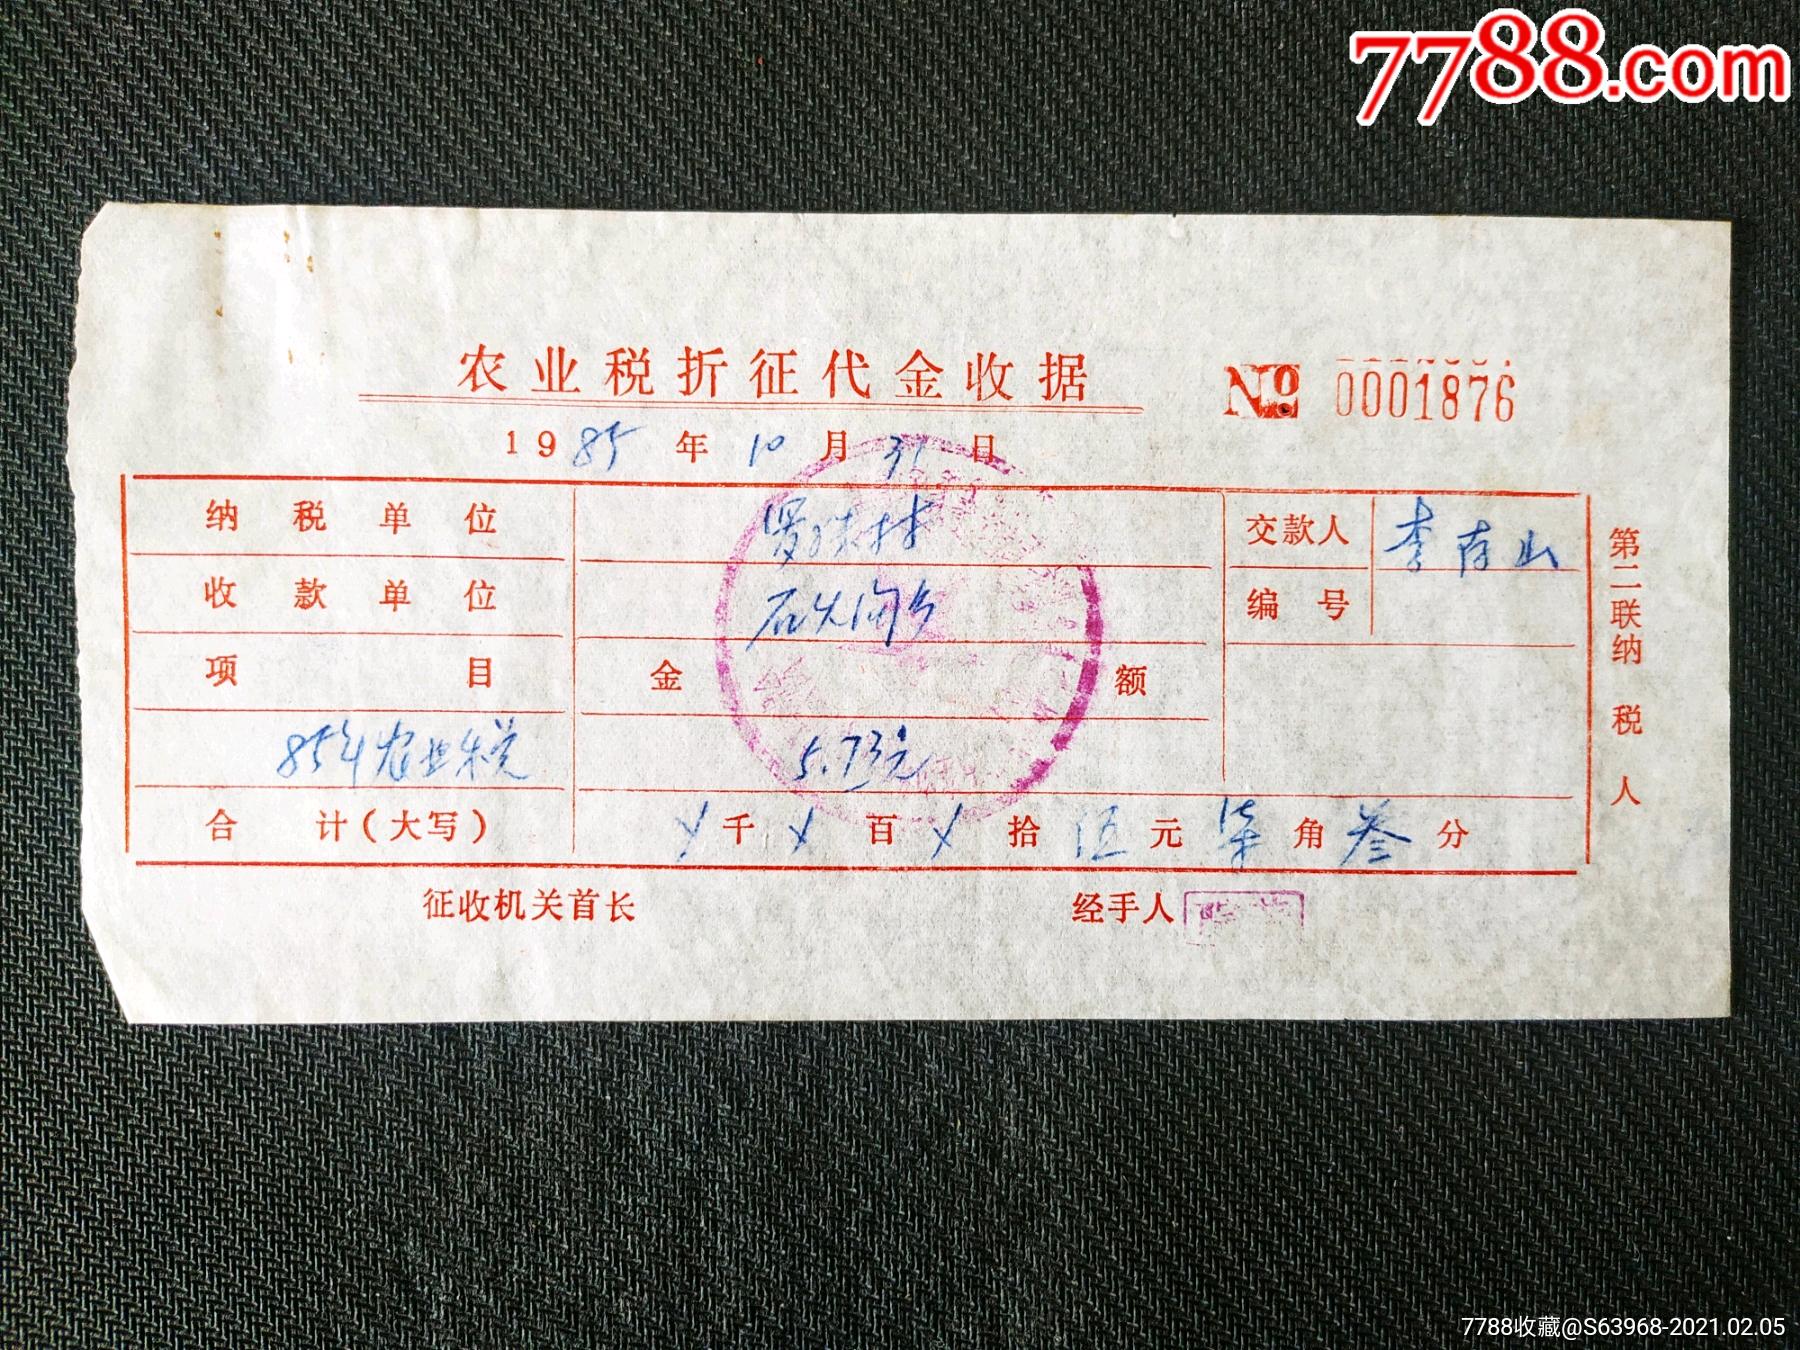 7788.com
农业税折征代金收据
№ 0001876
1985年10月31日
纳税单位
交款人 李存山
收款单位
编号
项目 金额
85年农业税 5.73元
合计(大写) ㄨ千ㄨ百ㄨ拾伍元柒角叁分
征收机关首长 经手人
第二联纳税人
7788收藏@S63968-2021.02.05